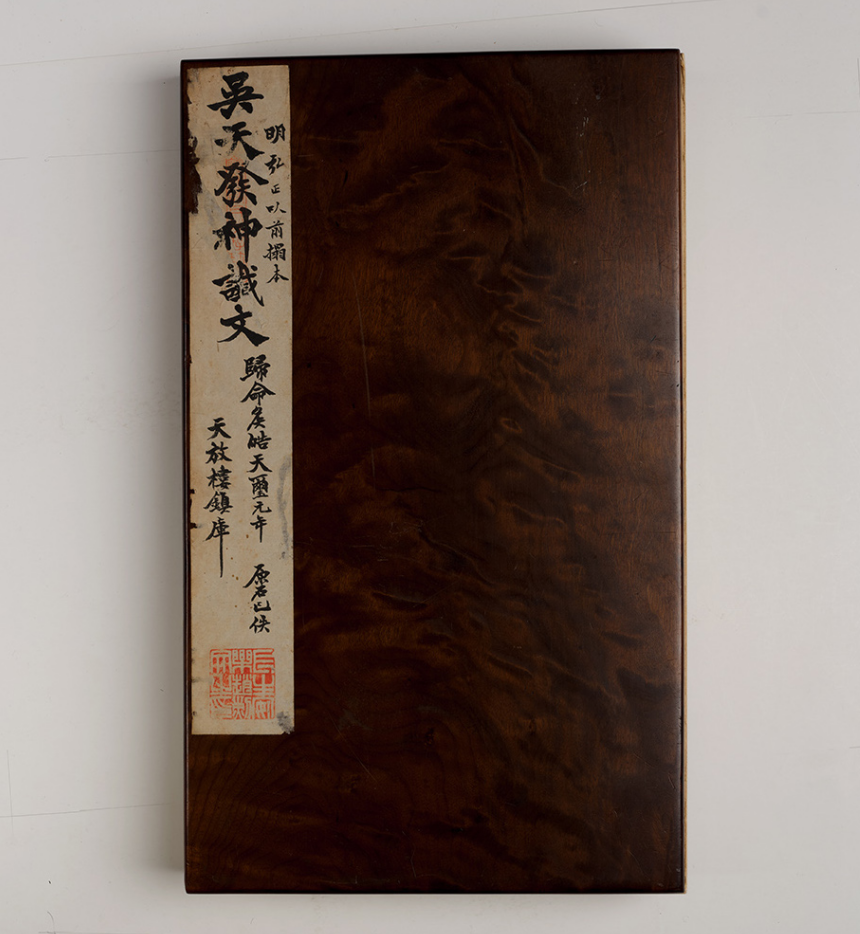 明弘正以前搨本
吳天發神讖文
歸命矦皓天璽元年 原石已佚
天放樓鎮庫